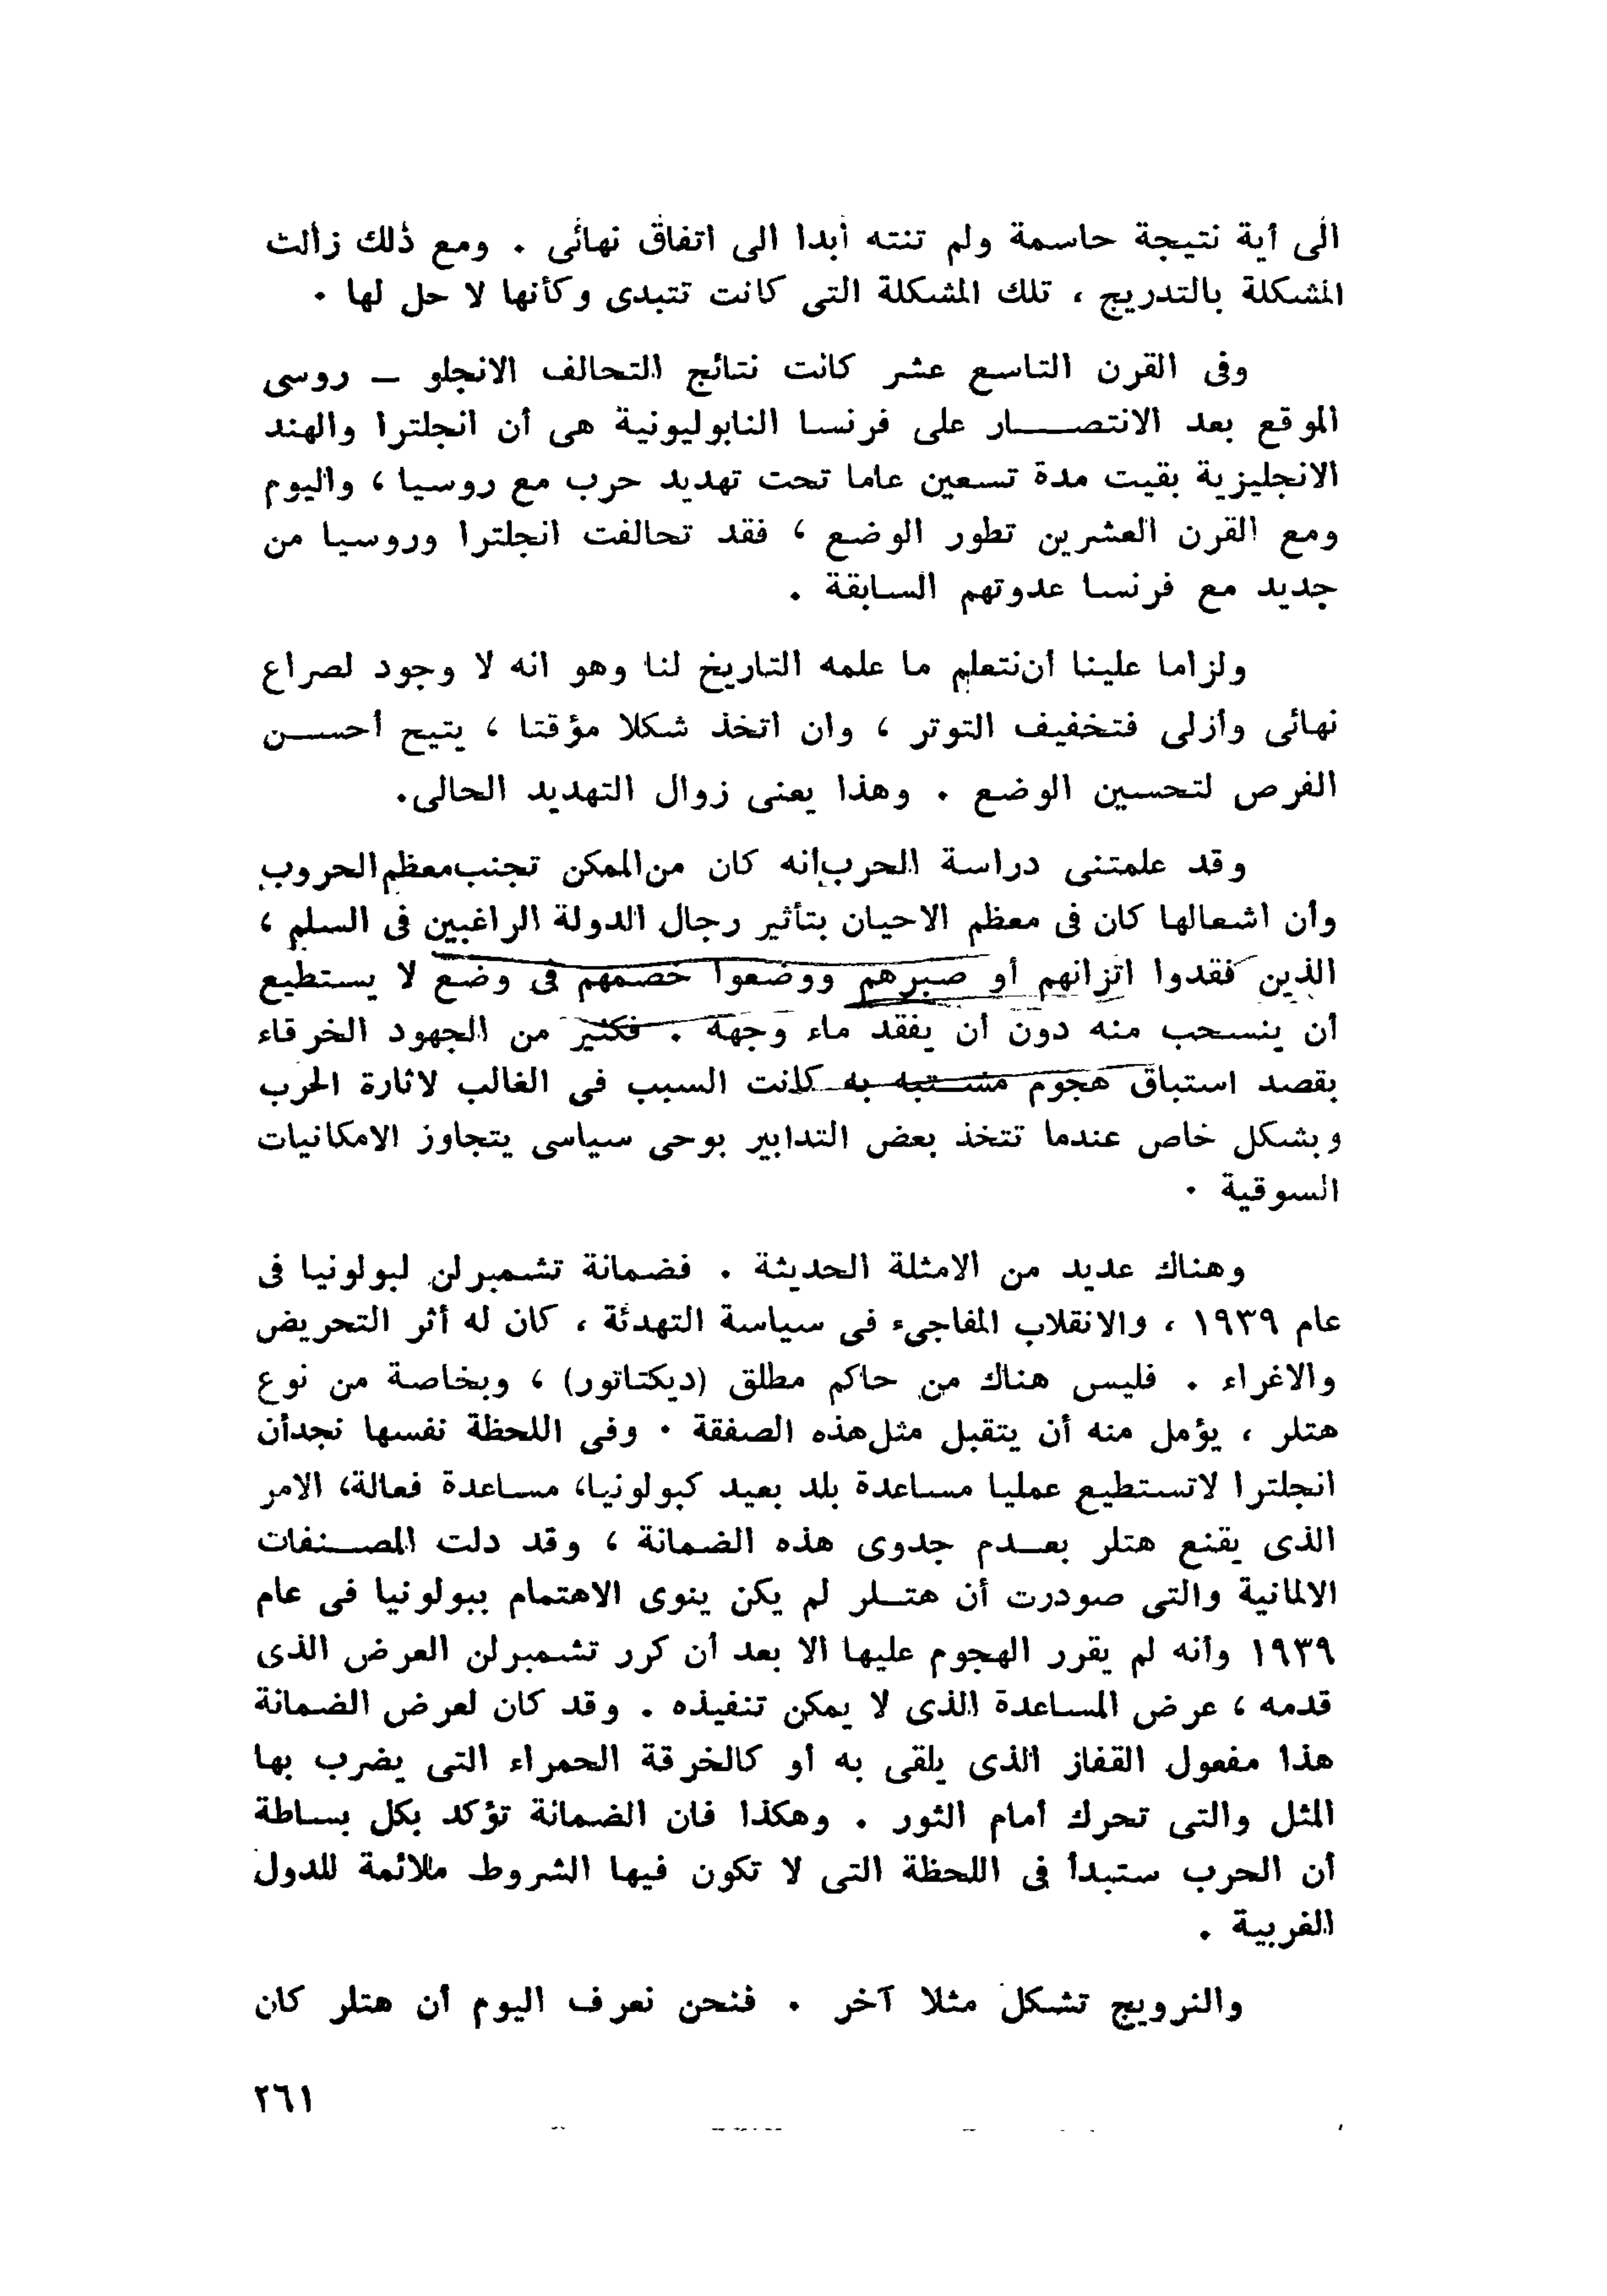 الى أية نتيجة حاسمة ولم تنته أبدا الى اتفاق نهائى . ومع ذلك زالت
المشكلة بالتدريج ، تلك المشكلة التى كانت تتبدى وكأنها لا حل لها .
وفى القرن التاسع عشر كانت نتائج التحالف الانجلو – روسى
الموقع بعد الانتصار على فرنسا النابوليونية هى أن انجلترا والهند
الانجليزية بقيت مدة تسعين عاما تحت تهديد حرب مع روسيا ، واليوم
ومع القرن العشرين تطور الوضع ، فقد تحالفت انجلترا وروسيا من
جديد مع فرنسا عدوتهم السابقة .
ولزاما علينا أن نتعلم ما علمه التاريخ لنا وهو انه لا وجود لصراع
نهائى وأزلى فتخفيف التوتر ، وان اتخذ شكلا مؤقتا ، يتيح أحسن
الفرص لتحسين الوضع . وهذا يعنى زوال التهديد الحالى.
وقد علمتنى دراسة الحرب أنه كان من الممكن تجنب معظم الحروب
وأن اشعالها كان فى معظم الاحيان بتأثير رجال الدولة الراغبين فى السلم ،
الذين فقدوا اتزانهم أو صبرهم ووضعوا خصمهم فى وضع لا يستطيع
أن ينسحب منه دون أن يفقد ماء وجهه . فكثير من الجهود الخرقاء
بقصد استباق هجوم مشتبه به كانت السبب فى الغالب لاثارة الحرب
وبشكل خاص عندما تتخذ بعض التدابير بوحى سياسى يتجاوز الامكانيات
السوقية .
وهناك عديد من الامثلة الحديثة . فضمانة تشمبرلن لبولونيا فى
عام ١٩٣٩ ، والانقلاب المفاجىء فى سياسة التهدئة ، كان له أثر التحريض
والاغراء . فليس هناك من حاكم مطلق (ديكتاتور) ، وبخاصة من نوع
هتلر ، يؤمل منه أن يتقبل مثل هذه الصفقة . وفى اللحظة نفسها نجد أن
انجلترا لاتستطيع عمليا مساعدة بلد بعيد كبولونيا، مساعدة فعالة، الامر
الذى يقنع هتلر بعدم جدوى هذه الضمانة ، وقد دلت المصنفات
الالمانية والتى صودرت أن هتلر لم يكن ينوى الاهتمام ببولونيا فى عام
١٩٣٩ وأنه لم يقرر الهجوم عليها الا بعد أن كرر تشمبرلن العرض الذى
قدمه ، عرض المساعدة الذى لا يمكن تنفيذه . وقد كان لعرض الضمانة
هذا مفعول القفاز الذى يلقى به أو كالخرقة الحمراء التى يضرب بها
المثل والتى تحرك أمام الثور . وهكذا فان الضمانة تؤكد بكل بساطة
أن الحرب ستبدأ فى اللحظة التى لا تكون فيها الشروط ملائمة للدول
الغربية .
والنرويج تشكل مثلا آخر . فنحن نعرف اليوم أن هتلر كان
٢٦١